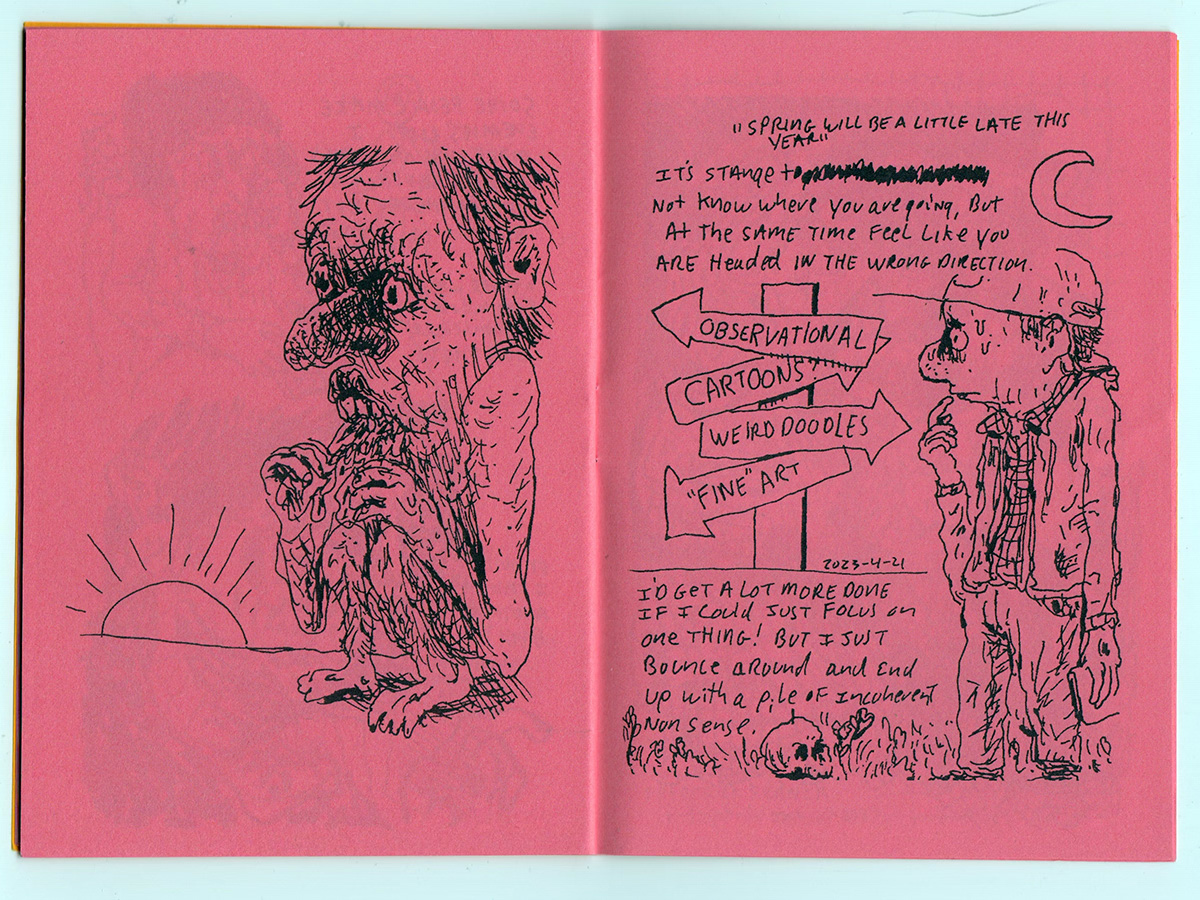 "SPRING WILL BE A LITTLE LATE THIS
YEAR"
IT'S STANGE to
Not Know where you are going, But
At The SAME TIME Feel Like you
ARE Headed IN THE WRONG DIRECTION.
OBSERVATIONAL
CARTOONS
WEIRD DOODLES
"FINE" ART
2023-4-21
I'D GET A LOT MORE DONE
IF I Could JUST FOCUS on
one THING! BUT I JUST
Bounce around and End
up with a pile OF Incoherent
Nonsense.